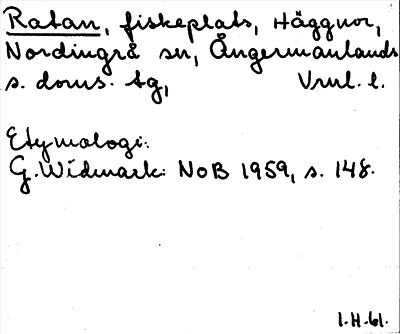 Ratan, fiskeplats, Häggnor,
Nordingrå sn, Ångermanlands
s. doms. tg, Vnul. l.
Etymologi:
G. Widmark: NoB 1959, s. 148.
1.H.61.